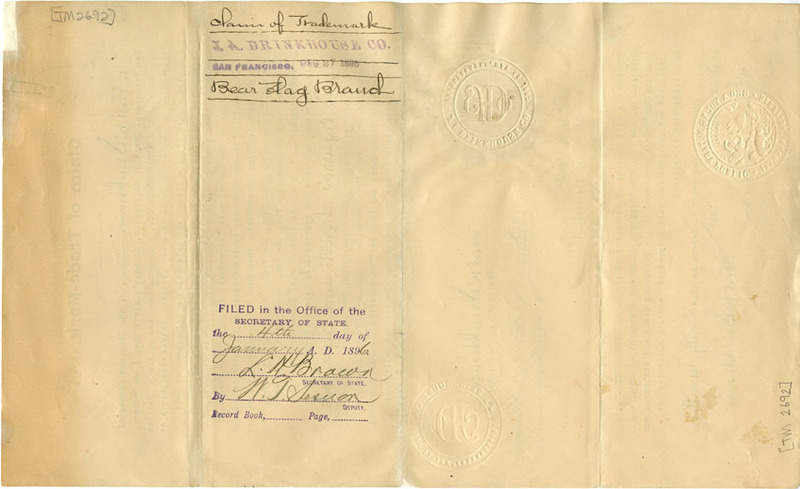 [TM2692]
Claim of Trademark
J. A. DRINKHOUSE CO.
SAN FRANCISCO. DEC 27 1895
Bear Flag Branch
FILED in the Office of the
SECRETARY OF STATE.
the 4th day of
January A. D. 1896
L. H. Brown
SECRETARY OF STATE.
By W. T. Sesnon
DEPUTY.
Record Book, Page,
[TM 2692]